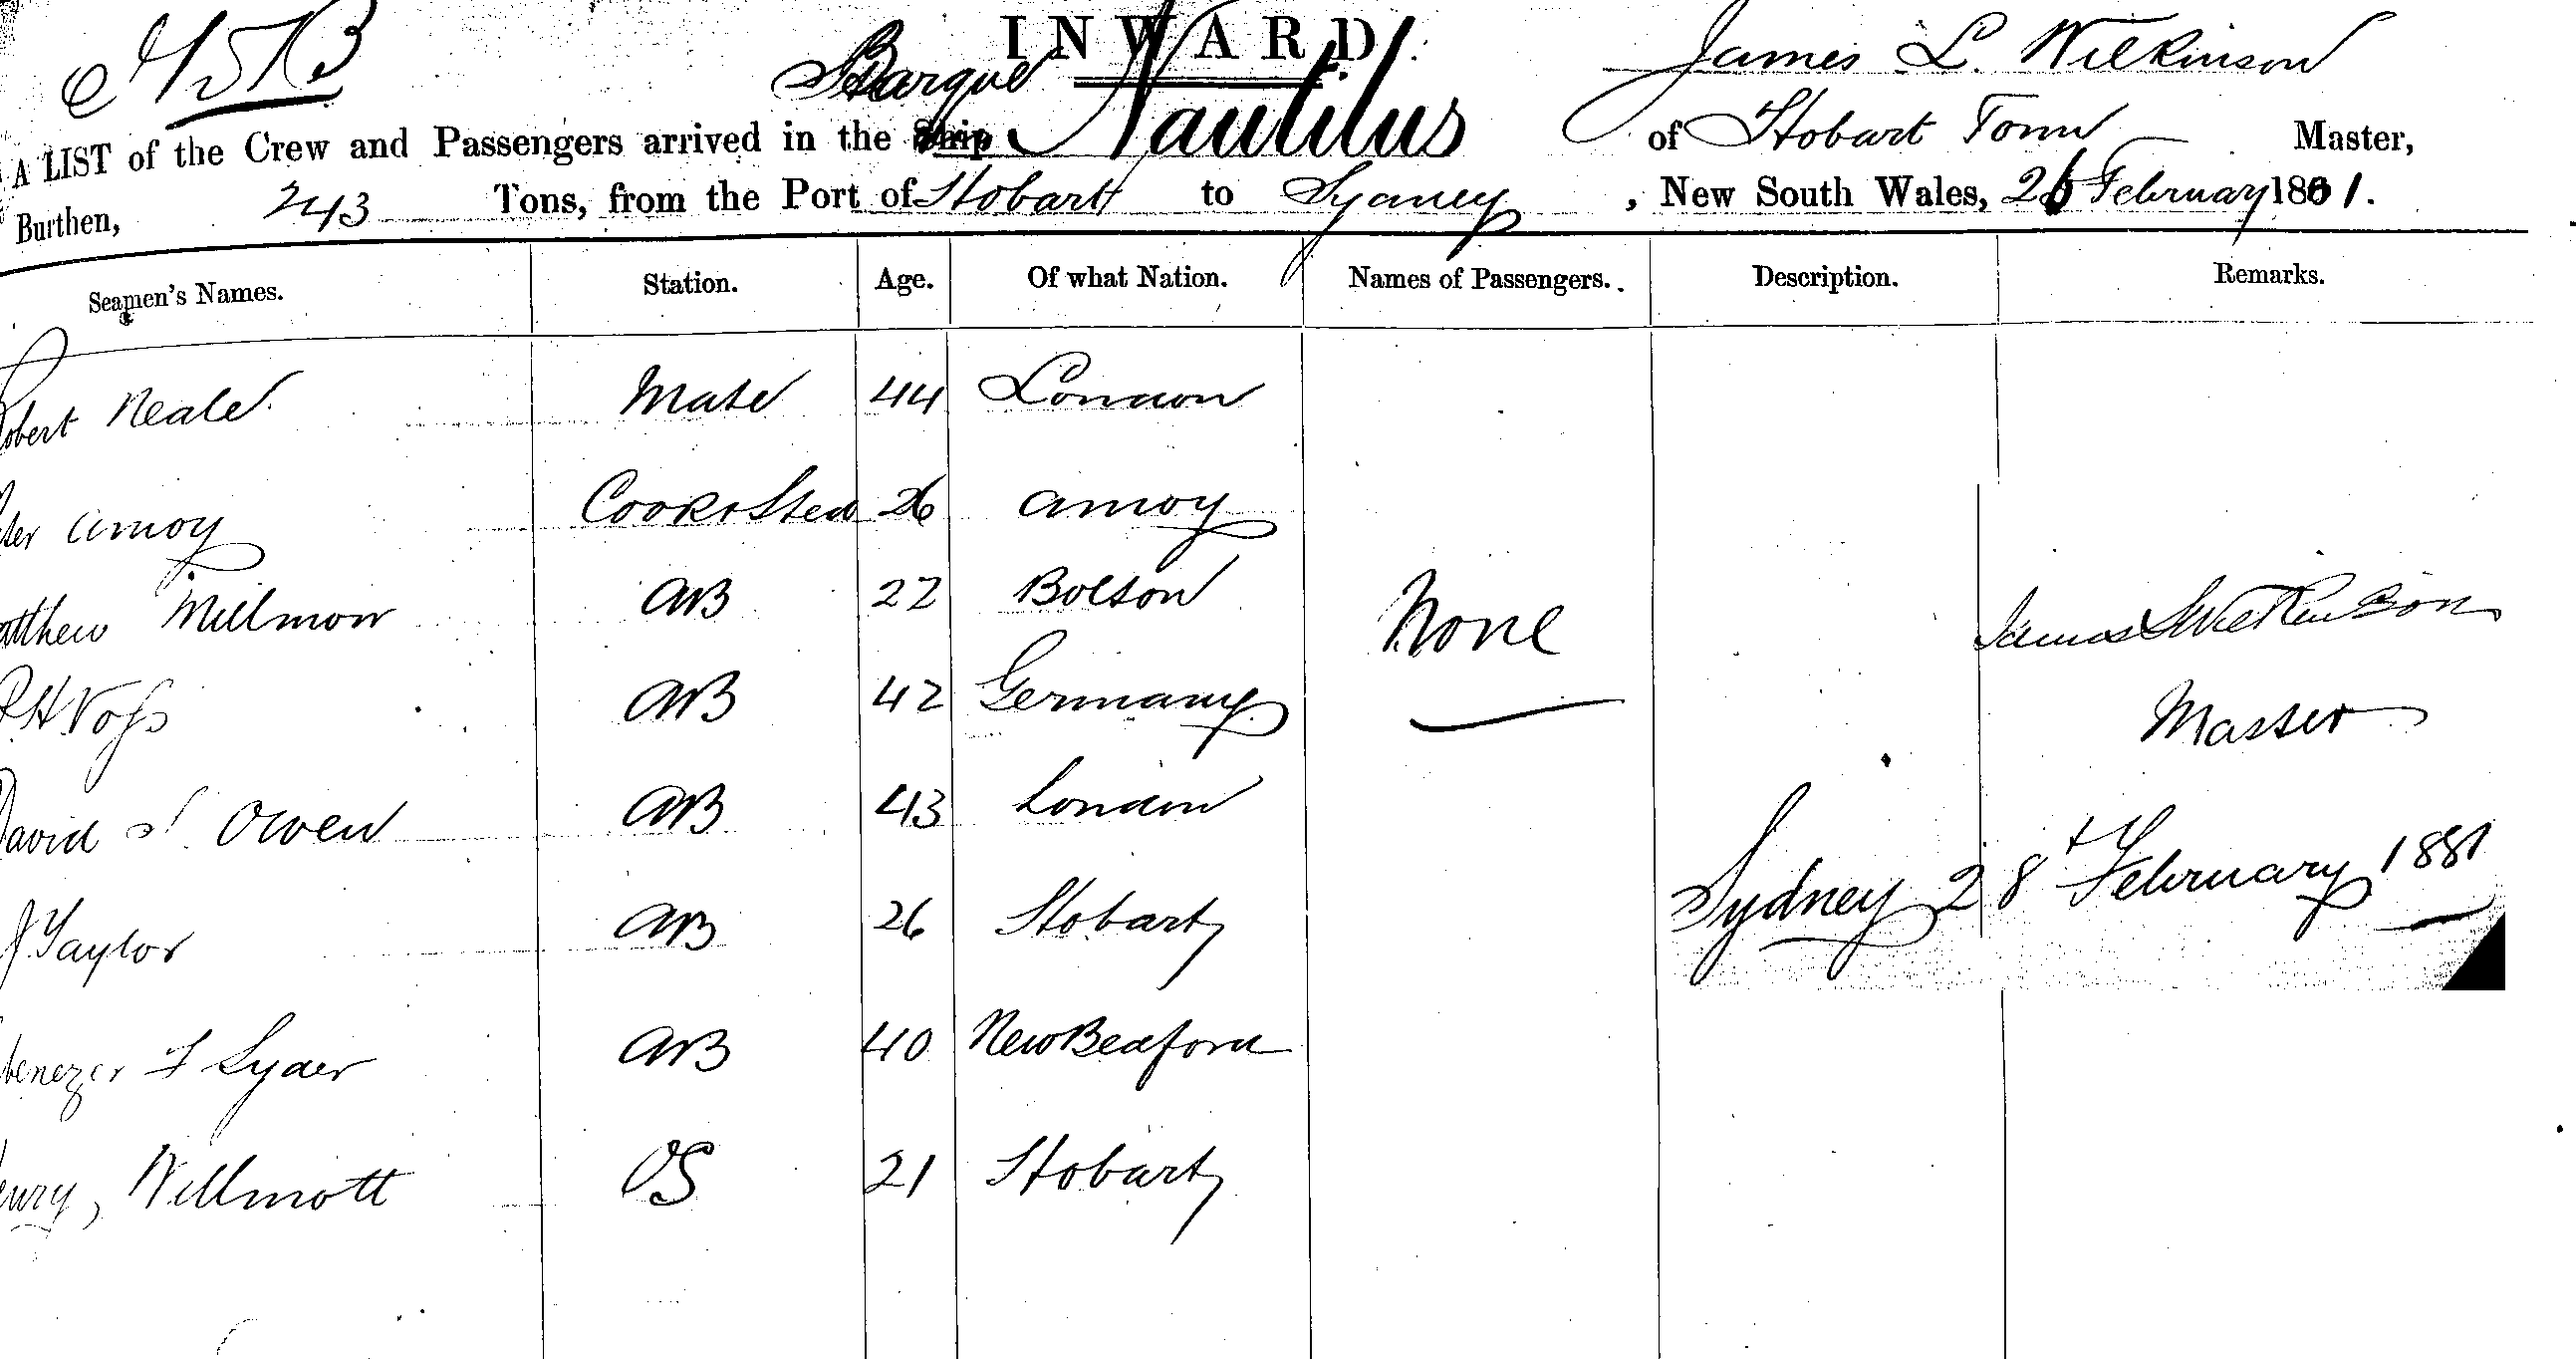 INWARD.
Barque Nautilus James L. Wilkinson
A LIST of the Crew and Passengers arrived in the Ship of Hobart Town Master,
Burthen, 243 Tons, from the Port of Hobart to Sydney, New South Wales, February 1881.
Seamen's Names. Station. Age. Of what Nation. Names of Passengers. Description. Remarks.
obert Neale Mate 44 London
ter Amoy Cook & Stew 26 Amoy
atthew Millmow AB 22 Bolton None James L Wilkinson
R H Voss AB 42 Germany Master
David J Owen AB 43 London
J. Taylor AB 26 Hobart Sydney 28th February 1881
benezer F Lyder AB 40 New Bedford
enry, Willmott OS 21 Hobart